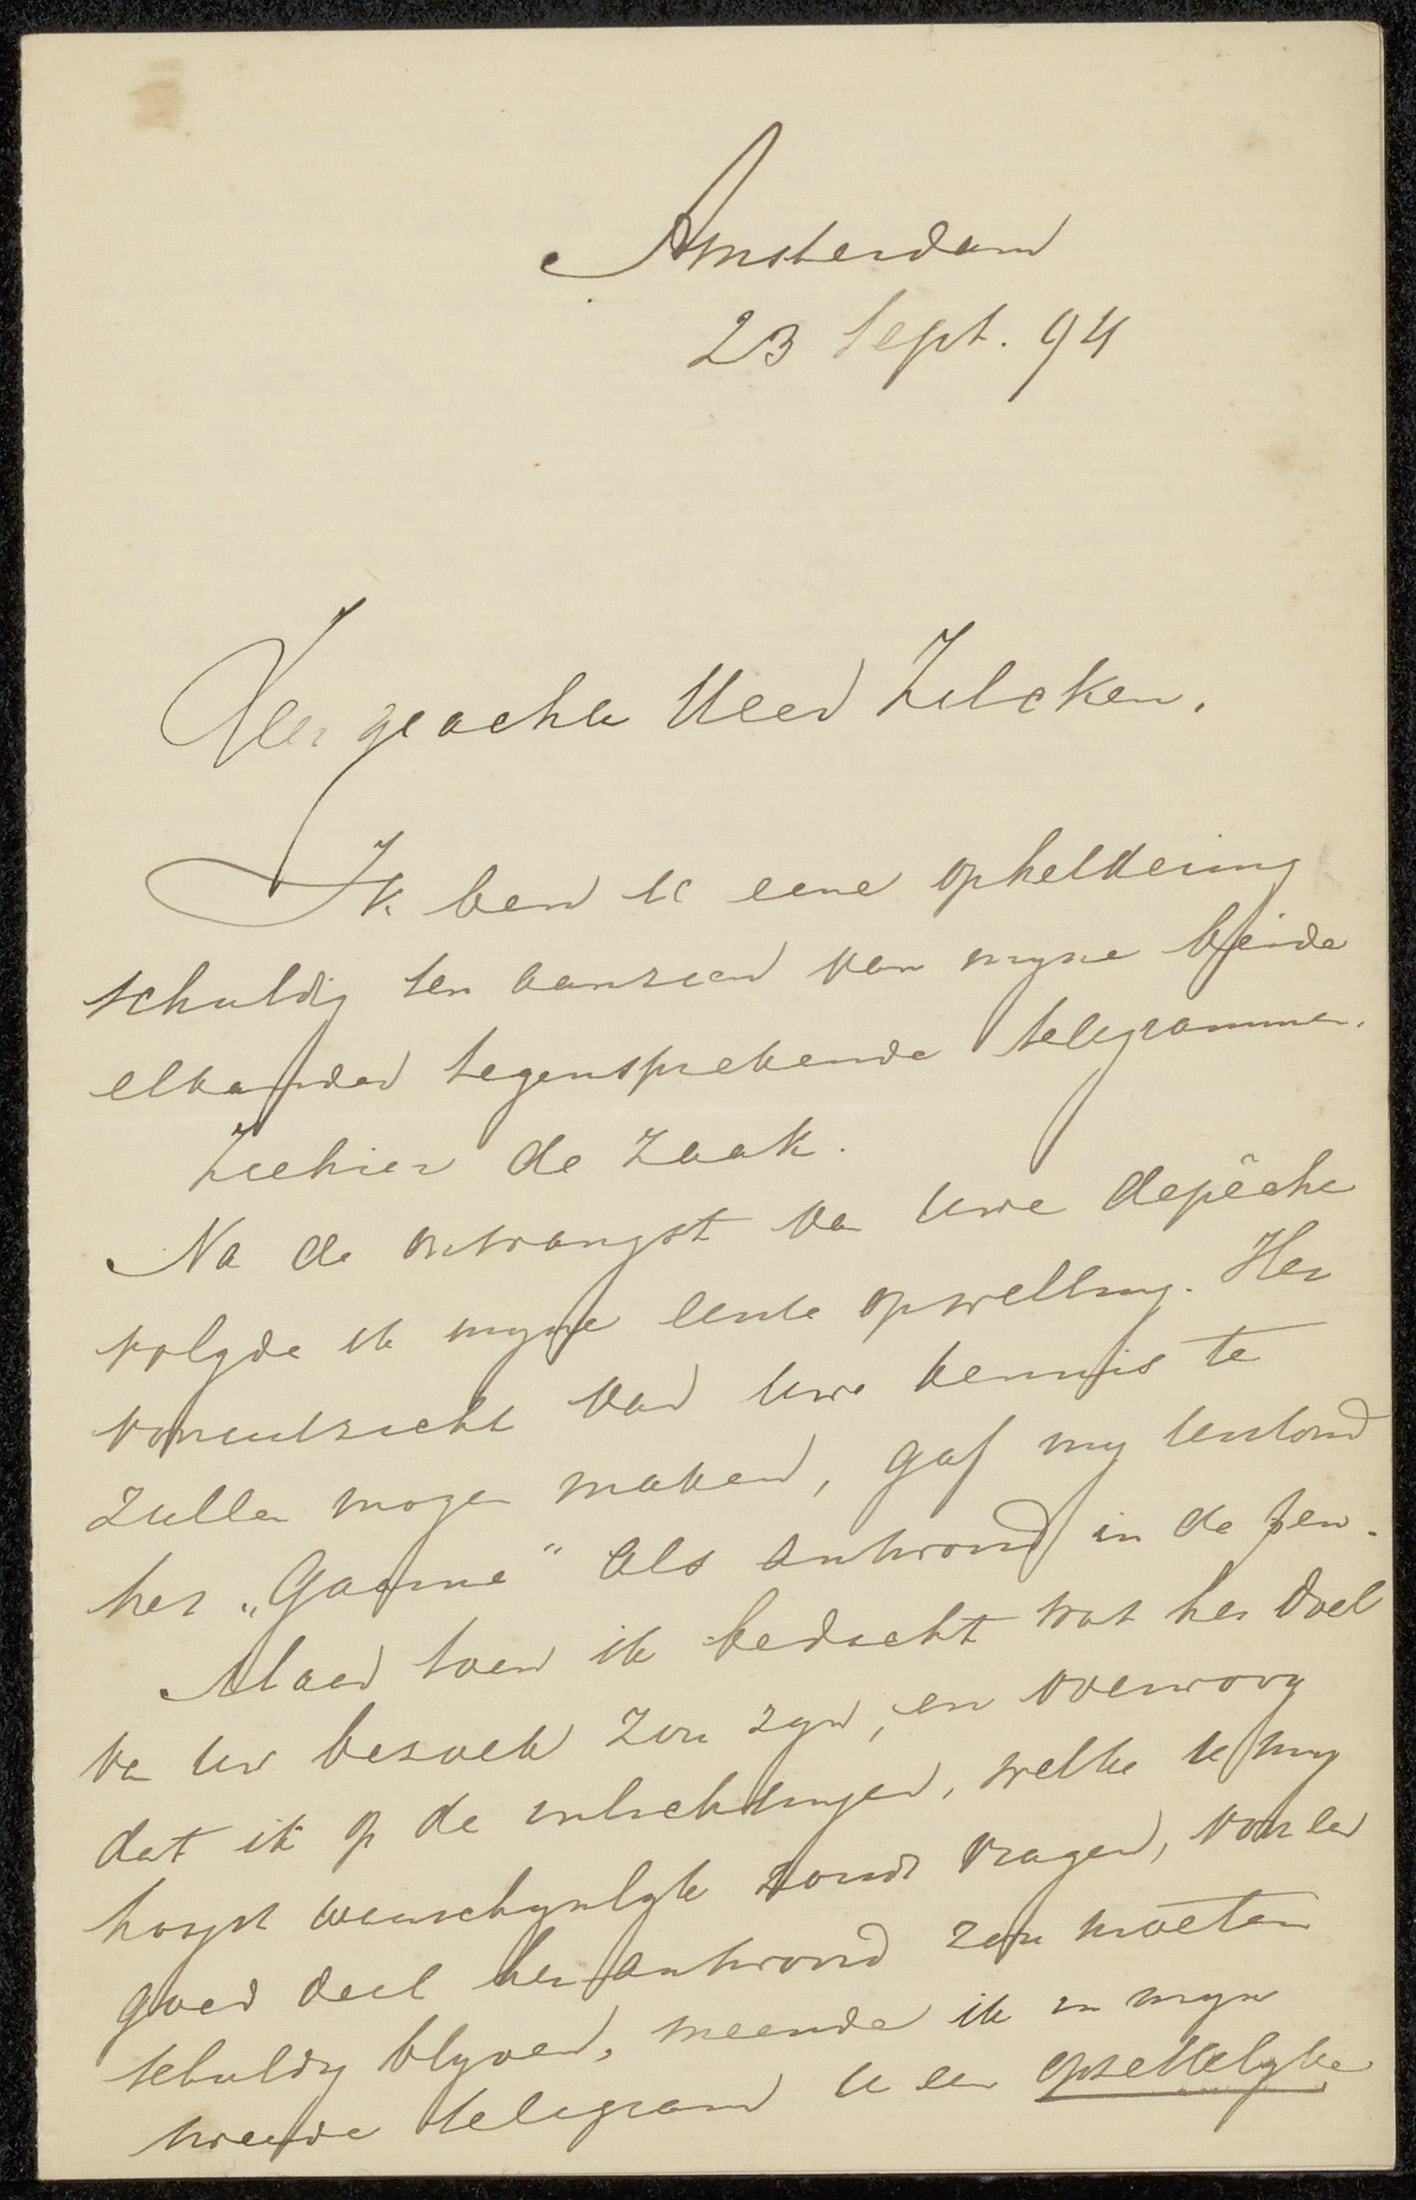 Amsterdam
23 Sept. 94
Zeer geachte Heer Zilcken.
Ik ben U eene opheldering
schuldig ten aanzien van myne beide
elkander tegensprekende telegrammen.
Ziehier de zaak.
Na de ontvangst van Uwe depêche
volgde ik myne eerste opwelling. Het
vooruitzicht van Uwe kennis te
zullen mogen maken, gaf my terstond
het „Gaarne" als antwoord in de pen.
Maar toen ik bedacht wat het doel
van Uw bezoek zou zyn, en overwoog
dat ik op de inlichtingen, welke U my
hoogst waarschynlyk zoudt vragen, voor een
goed deel het antwoord zou moeten
schuldig blyven, meende ik in myn
tweede telegram U een opzettelyke